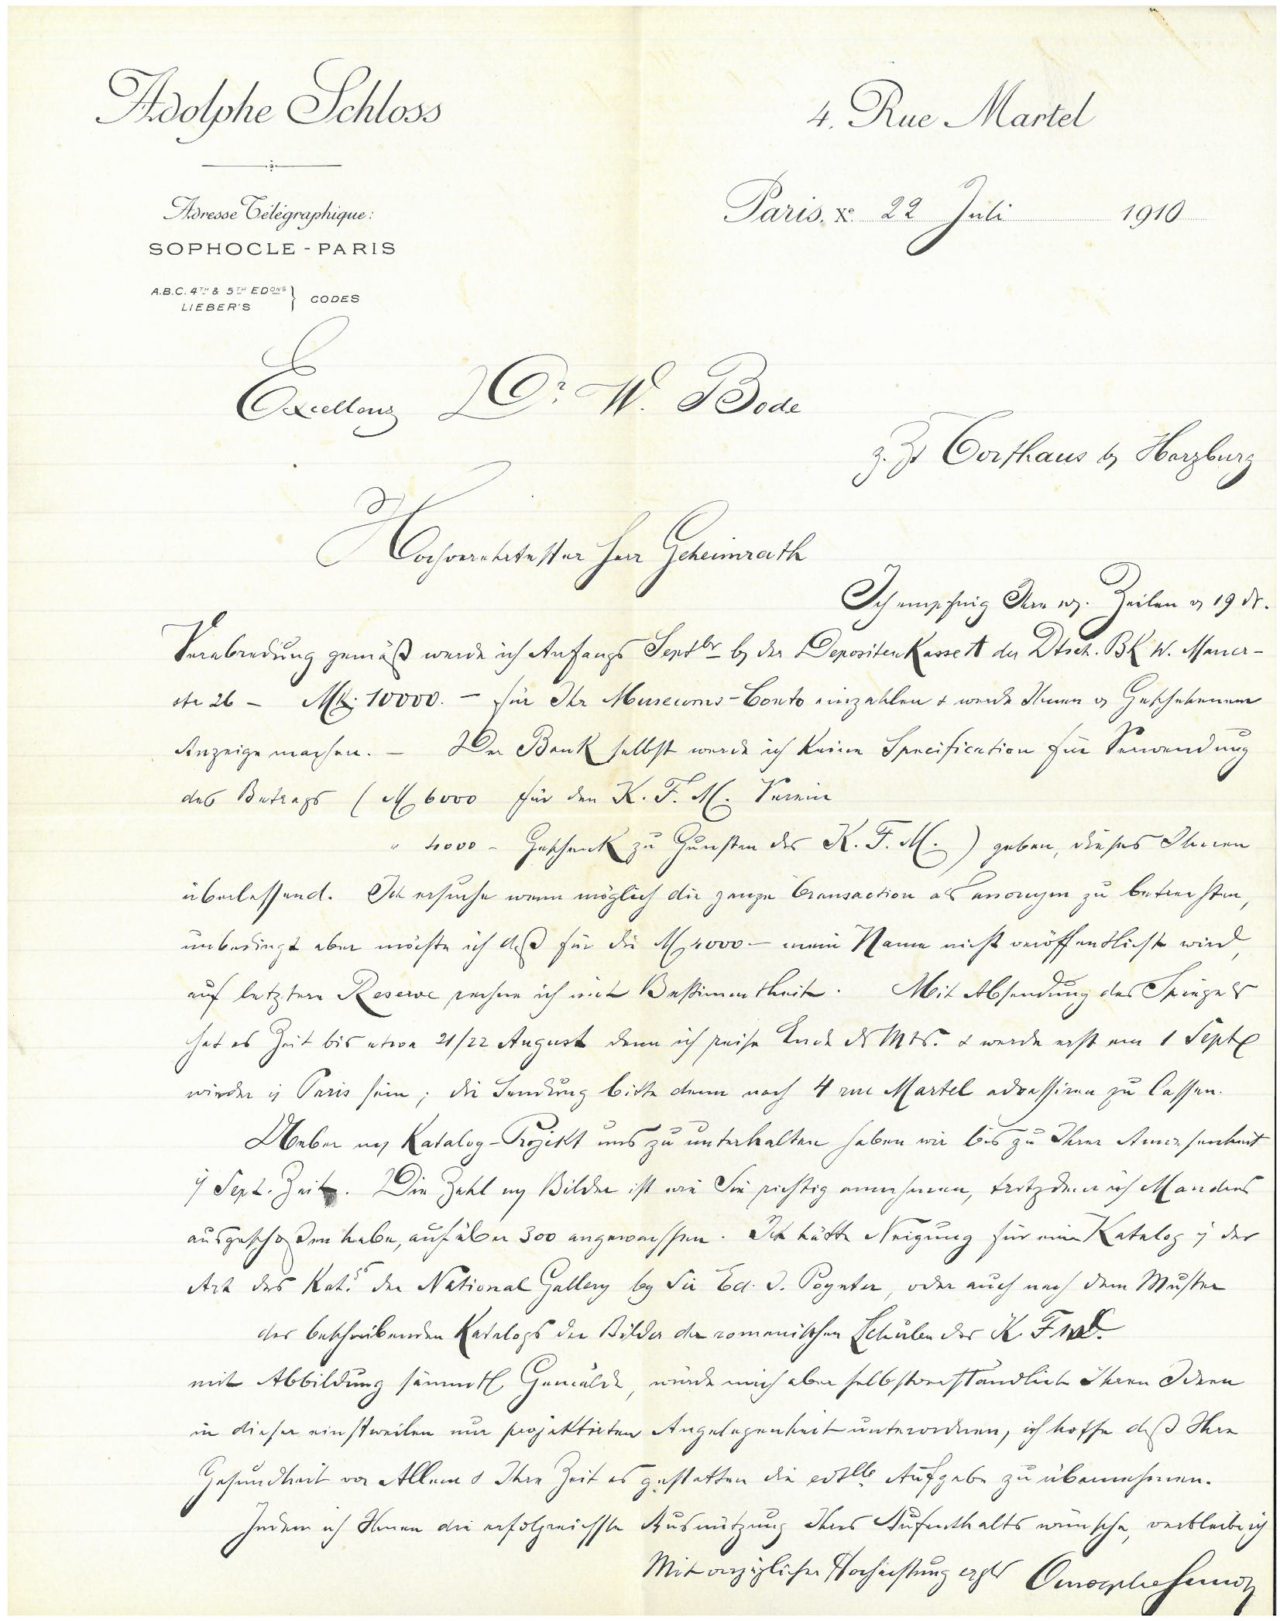 Adolphe Schloss
4, Rue Martel
Adresse Télégraphique:
SOPHOCLE - PARIS
A.B.C. 4TH & 5TH EDONS
LIEBER'S
CODES
Paris, Xe 22 Juli 1910
Excellenz Dr W. Bode
z. Zt Torfhaus b/ Harzburg
Hochverehrtester Herr Geheimrath
Ich empfing Ihre Zeilen v 19 ds.
Verabredung gemäß werde ich Anfangs Septbr b/ der Depositenkasse A der Dtsch. BK W. Mauer-
str 26 – Mk. 10000. – für Ihr Museums-Conto einzahlen & werde Ihnen v Geschehenem
Anzeige machen. – Der Bank selbst werde ich keine Specification für Verwendung
des Betrags ( M 6000 für den K. F. M. Verein
" 4000 – Geschenk zu Gunsten des K. F. M. ) geben, dieses Ihnen
überlassend. Ich ersuche wenn möglich die ganze Transaction als anonym zu betrachten,
unbedingt aber möchte ich daß für die M 4000 – mein Name nicht veröffentlicht wird,
auf letztere Reserve rechne ich mit Bestimmtheit. Mit Absendung des Spiegels
hat es Zeit bis etwa 21/22 August denn ich reise Ende ds Mts. & werde erst am 1 Sept
wieder i/ Paris sein; die Sendung bitte dann nach 4 rue Martel adressiren zu lassen.
Ueber m/ Katalog-Projekt uns zu unterhalten haben wir bis zu Ihrer Anwesenheit
i/ Sept. Zeit. Die Zahl m/ Bilder ist wie Sie richtig annehmen, trotzdem ich Manches
ausgeschoßen habe, auf über 300 angewachsen. Ich hätte Neigung für einen Katalog i/ der
Art des Kat.s der National Gallery by Sir Ed. J. Poynter, oder auch nach dem Muster
des beschreibenden Katalogs der Bilder der romanischen Schulen des K. F. M.
mit Abbildung sämmtl Gemälde, würde mich aber selbstverständlich Ihren Ideen
in dieser einstweilen nur projektirten Angelegenheit unterordnen, ich hoffe daß Ihre
Gesundheit vor Allem & Ihre Zeit es gestatten die Aufgabe zu übernehmen.
Indem ich Ihnen die erfolgreichste Ausnützung Ihres Aufenthalts wünsche, verbleibe ich
Mit vorzüglicher Hochachtung